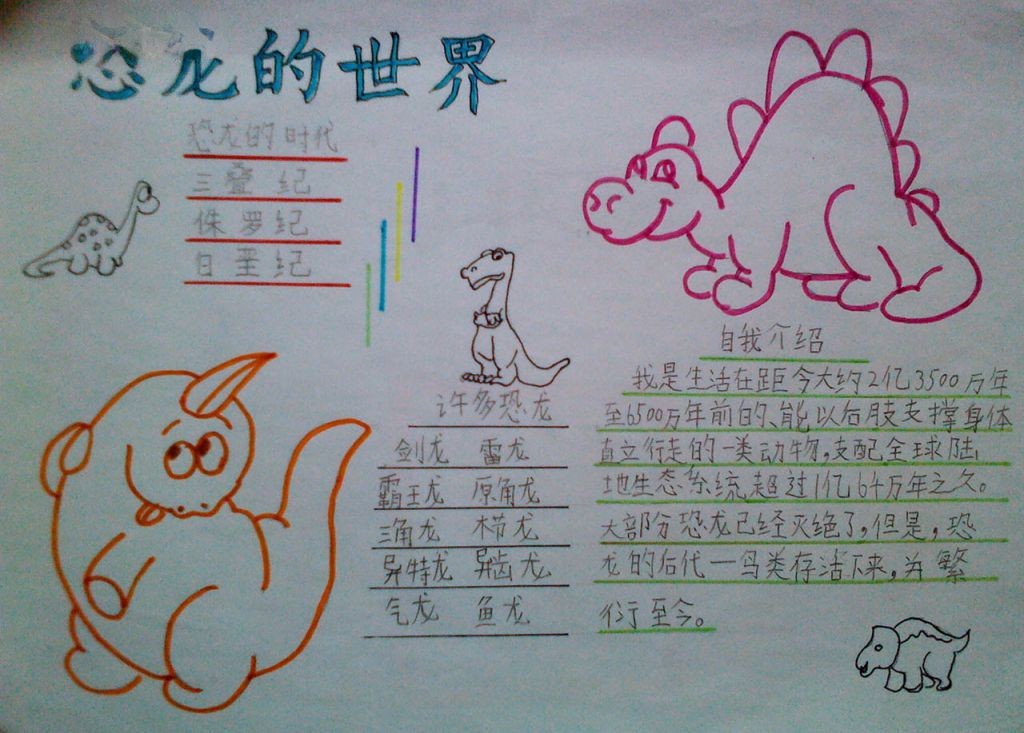 恐龙的世界
恐龙的时代
三叠纪
侏罗纪
白垩纪
许多恐龙
剑龙 雷龙
霸王龙 原角龙
三角龙 木节龙
异特龙 异齿龙
气龙 鱼龙
自我介绍
我是生活在距今大约2亿3500万年
至6500万年前的、能以后肢支撑身体
直立行走的一类动物，支配全球陆
地生态系统超过1亿6千万年之久。
大部分恐龙已经灭绝了，但是，恐
龙的后代一鸟类存活下来，为繁
衍至今。